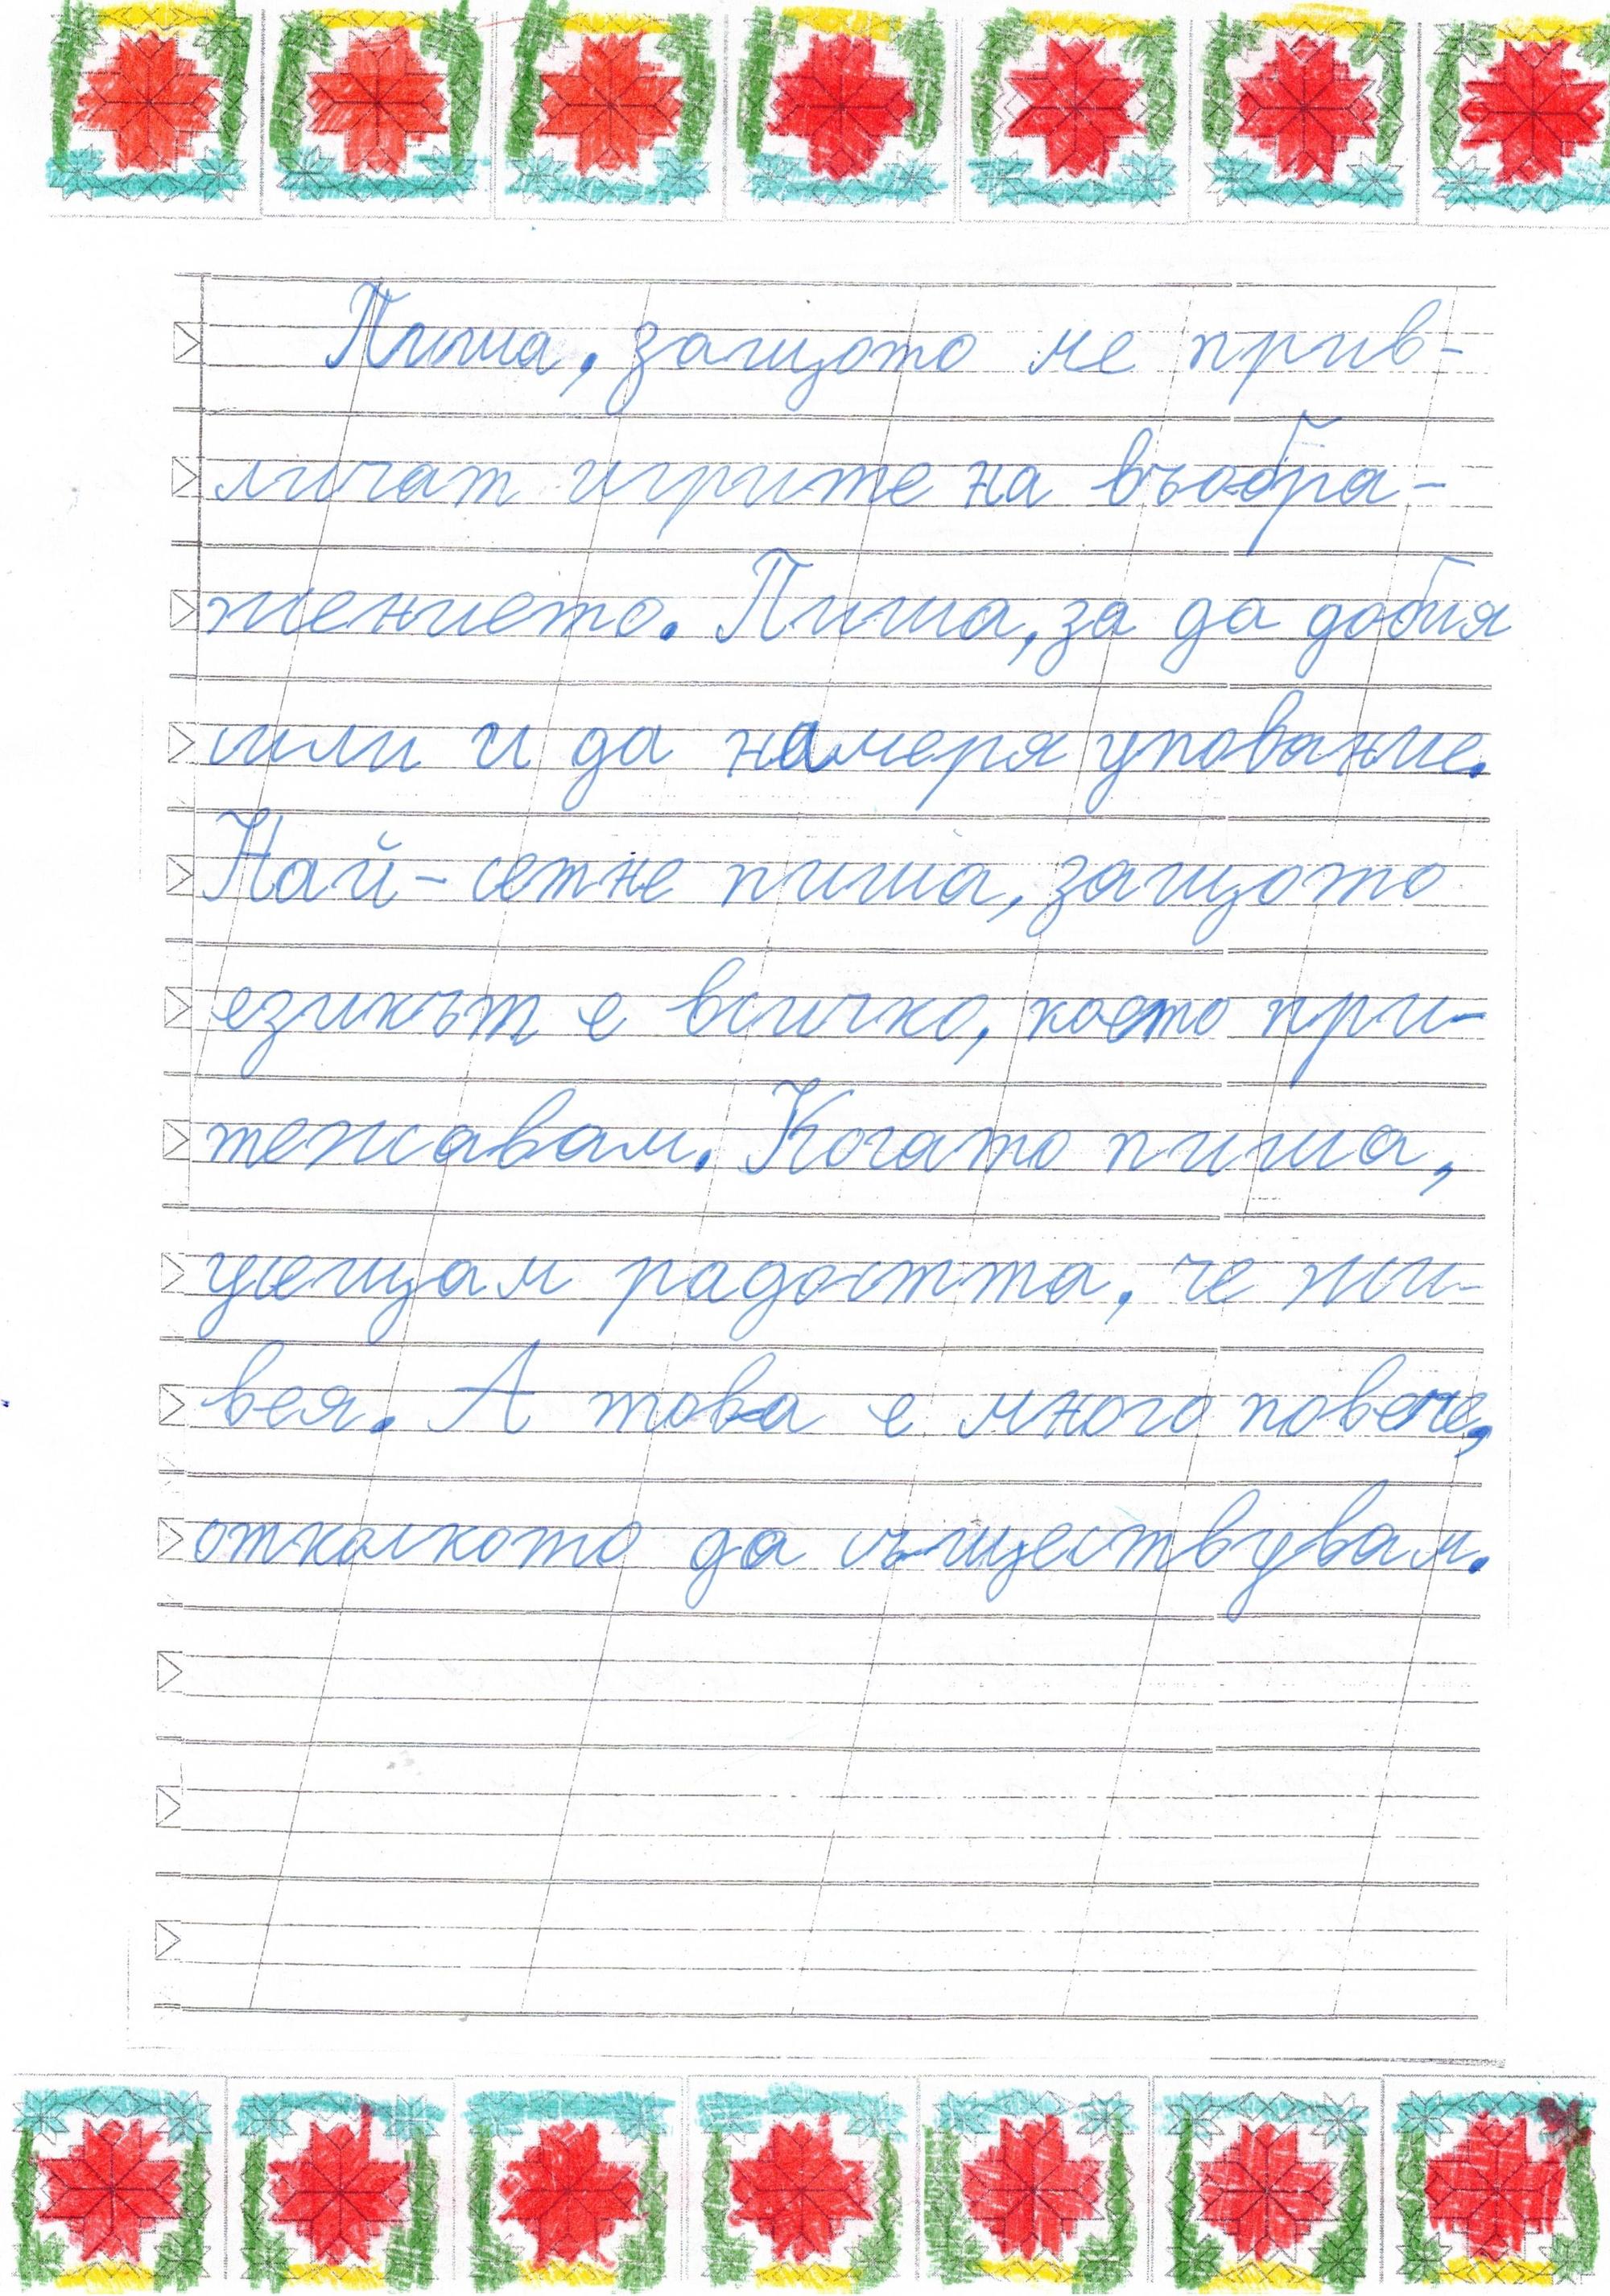 Пиша, защото ме прив-
личат игрите на въобра-
жението. Пиша, за да добия
или и да намеря упование.
Най-сетне пиша, защото
езикът е всичко, което при-
тежавам. Когато пиша,
усещам радостта, че жи-
вея. А това е много повече,
отколкото да съществувам.